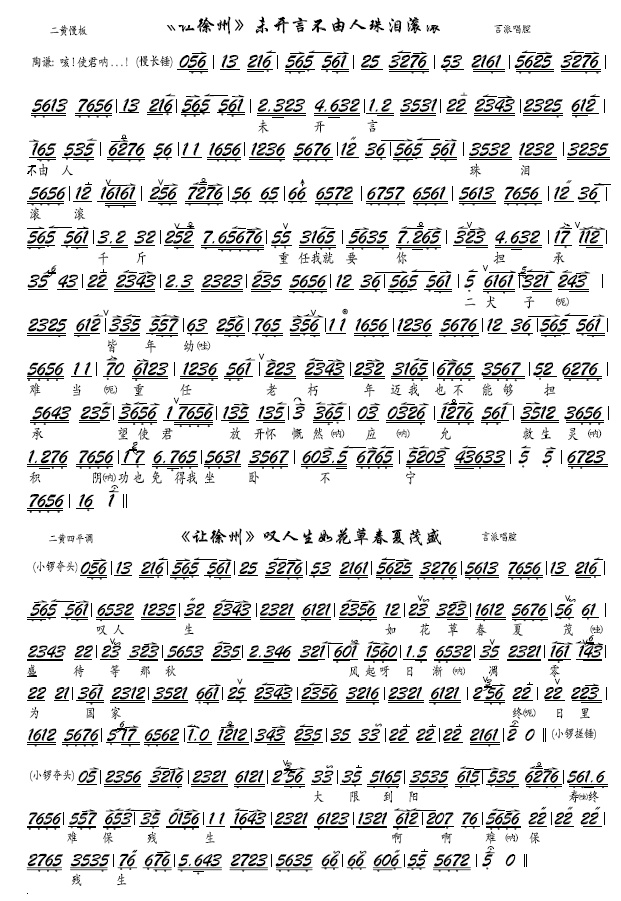 二黄慢板 《让徐州》未开言不由人珠泪滚滚 言派唱腔
陶谦: 咳!使君呐...! (慢长锤) 056 | 13 216 | 565 561 | 25 3276 | 53 2161 | 5625 3276 |
5613 7656 | 13 216 | 565 561 | 2.323 4.632 | 1.2 3531 | 22 2343 | 2325 612 |
未 开 言
165 535 | 6276 56 | 11 1656 | 1236 5676 | 12 36 | 565 561 | 3532 1232 | 3235
不由 人 珠 泪
5656 | 12 16161 | 256 7276 | 56 65 | 66 6572 | 6757 6561 | 5613 7656 | 12 36 |
滚 滚
565 561 | 3.2 32 | 252 7.65676 | 55 3165 | 5635 7.265 | 323 4.632 | 17 112 |
千 斤 重 任我就 要 你 担 承
35 43 | 22 2343 | 2.3 2323 | 235 5656 | 12 36 | 565 561 | 5 6161 | 321 243 |
二 犬 子 (呃)
2325 612 | 335 557 | 63 256 | 765 356 | 11 1656 | 1236 5676 | 12 36 | 565 561 |
皆 年 幼(哇)
5656 11 | 70 6123 | 1236 561 | 223 2343 | 232 3165 | 6765 3567 | 52 6276 |
难 当 (呃) 重 任 老 朽 年 迈我 也 不 能够 担
5643 235 | 3656 17656 | 135 135 | 3 365 | 03 0326 | 1276 561 | 3512 3656 |
承 望使 君 放 开怀 慨 然 (呐) 应 (呐) 允 救生 灵(呐)
1.276 7656 | 17 6.765 | 5631 3567 | 603.5 6765 | 5203 43633 | 5 5 | 6723
积 阴(呐)功也 免 得我坐 卧 不 宁
7656 | 16 1 ‖
二黄四平调 《让徐州》叹人生如花草春夏茂盛 言派唱腔
(小锣夺头) 056 | 13 216 | 2321 2356 | 3216 2376 | 53 2161 | 5625 3276 | 5613 7656 | 13 216 |
565 561 | 6532 1235 | 32 2343 | 2321 6121 | 2356 12 | 23 323 | 1612 5676 | 56 61 |
叹人 生 如 花 草 春 夏 茂 (哇)
2343 22 | 23 323 | 5653 235 | 2.346 321 | 601 1560 | 1.5 6532 | 35 2321 | 161 143 |
盛 待 等那 秋 风起呀 日 渐(呐) 凋 零
22 21 | 361 2312 | 3521 661 | 25 2343 | 2356 3216 | 2321 6121 | 256 22 | 22 223 |
为 国家 终(呃) 日里
1612 5676 | 517 6562 | 1.0 1212 | 343 235 | 35 33 | 22 22 | 22 2161 | 2 0 ‖ (小锣搓锤)
(小锣夺头) 05 | 2356 3216 | 2321 6121 | 256 33 | 35 5165 | 3535 615 | 535 6276 | 561.6
大 限 到 阳 寿(哇)终
7656 | 557 653 | 35 0156 | 11 1643 | 2321 6123 | 1321 612 | 207 76 | 5656 22 | 22 22 |
难 保 残 生 啊 啊 难(呐)保
2765 3535 | 76 676 | 5.643 2723 | 5635 66 | 66 606 | 55 5672 | 5 0 ‖
残 生